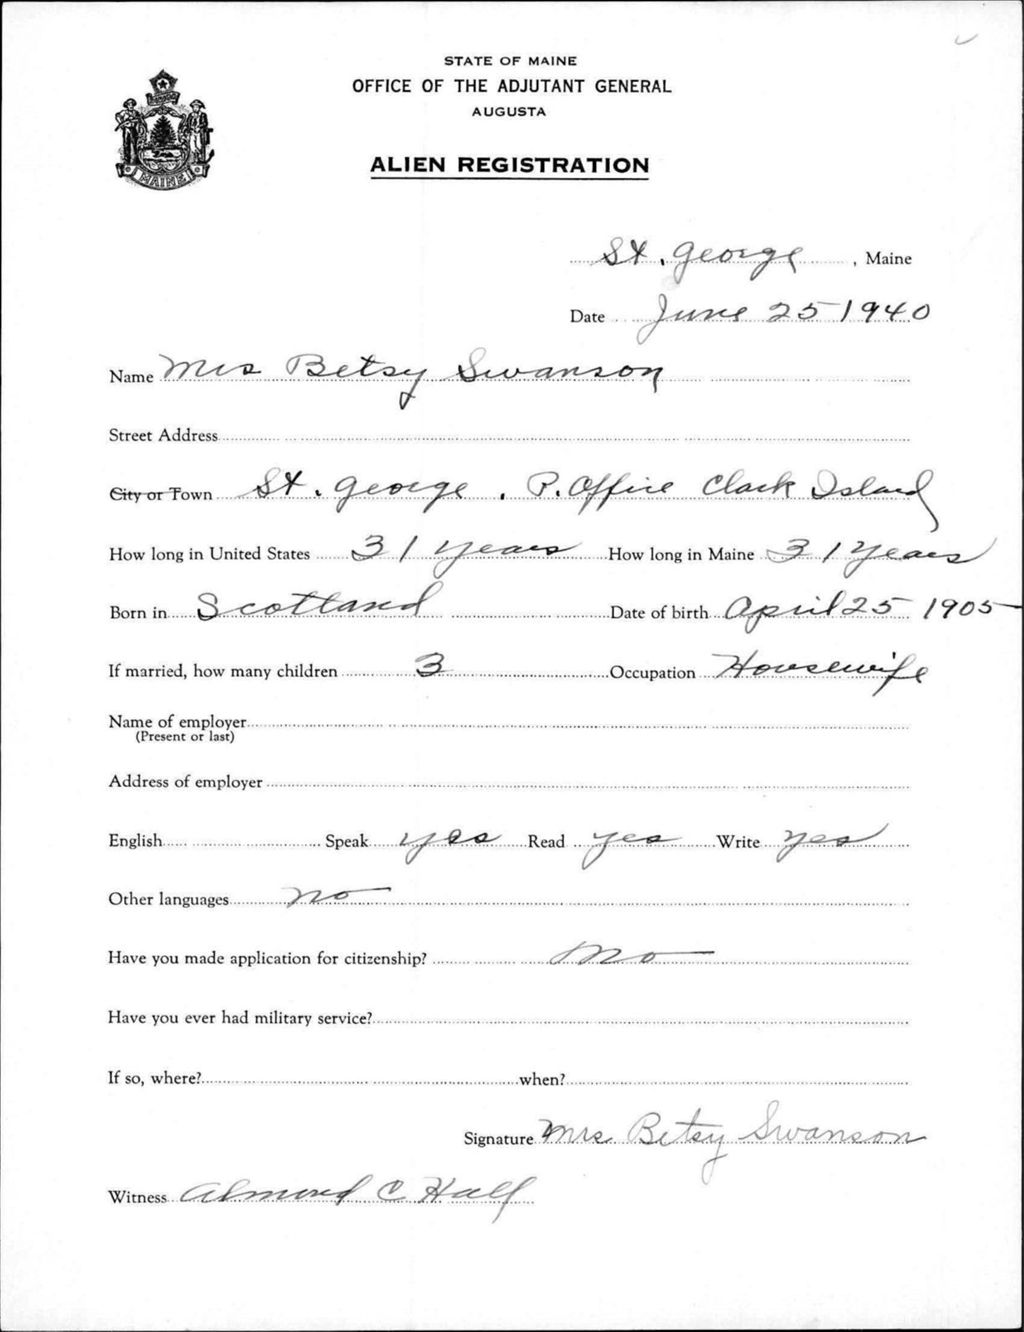 STATE OF MAINE
OFFICE OF THE ADJUTANT GENERAL
AUGUSTA
ALIEN REGISTRATION
MAINE
St. George, Maine
Date June 25 1940
Name Mrs Betsy Swanson
Street Address
City or Town St. George. P. Office Clark Island
How long in United States 31 years How long in Maine 31 Years
Born in Scotland Date of birth April 25 1905
If married, how many children 3 Occupation Housewife
Name of employer
(Present or last)
Address of employer
English Speak yes Read yes Write yes
Other languages no
Have you made application for citizenship? no
Have you ever had military service?
If so, where? when?
Signature Mrs Betsy Swanson
Witness Almond C Hall